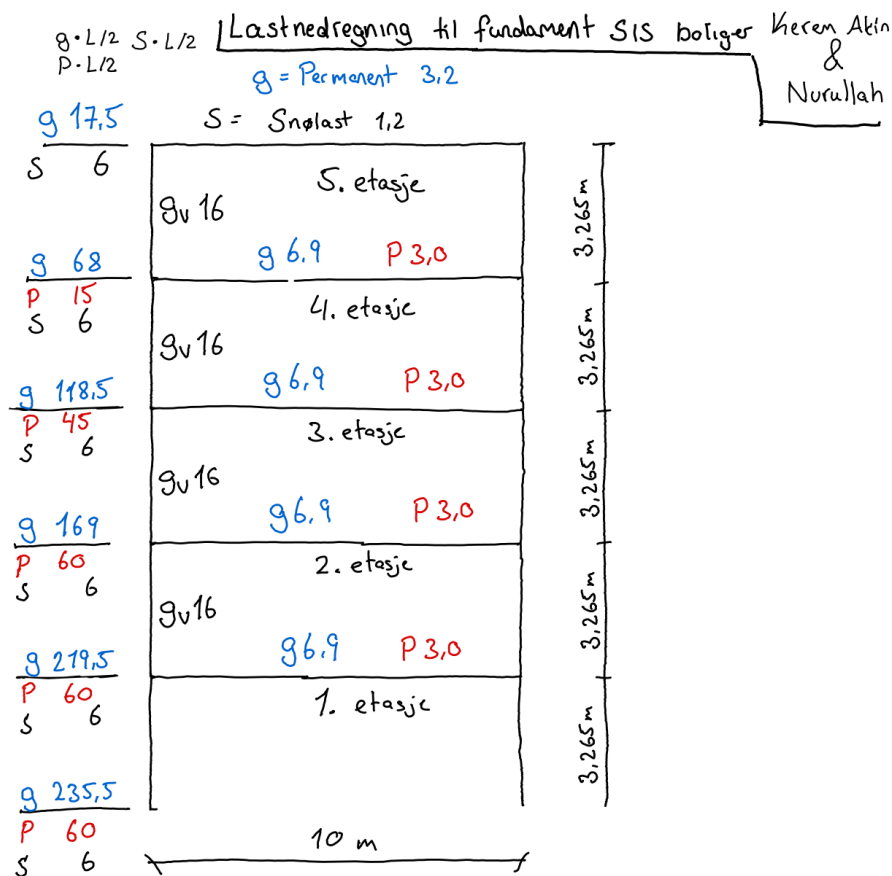 g·L/2 S·L/2
P·L/2
Lastnedregning til fundament SIS boliger
Kerem Akin
&
Nurullah
g = Permanent 3,2
S = Snølast 1,2
g 17,5
S 6
5. etasje
gv 16
g 6,9 P 3,0
3,265m
g 68
P 15
S 6
4. etasje
gv 16
g 6,9 P 3,0
3,265m
g 118,5
P 45
S 6
3. etasje
gv 16
g 6,9 P 3,0
3,265m
g 169
P 60
S 6
2. etasje
gv 16
g 6,9 P 3,0
3,265m
g 219,5
P 60
S 6
1. etasje
3,265m
g 235,5
P 60
S 6
10 m